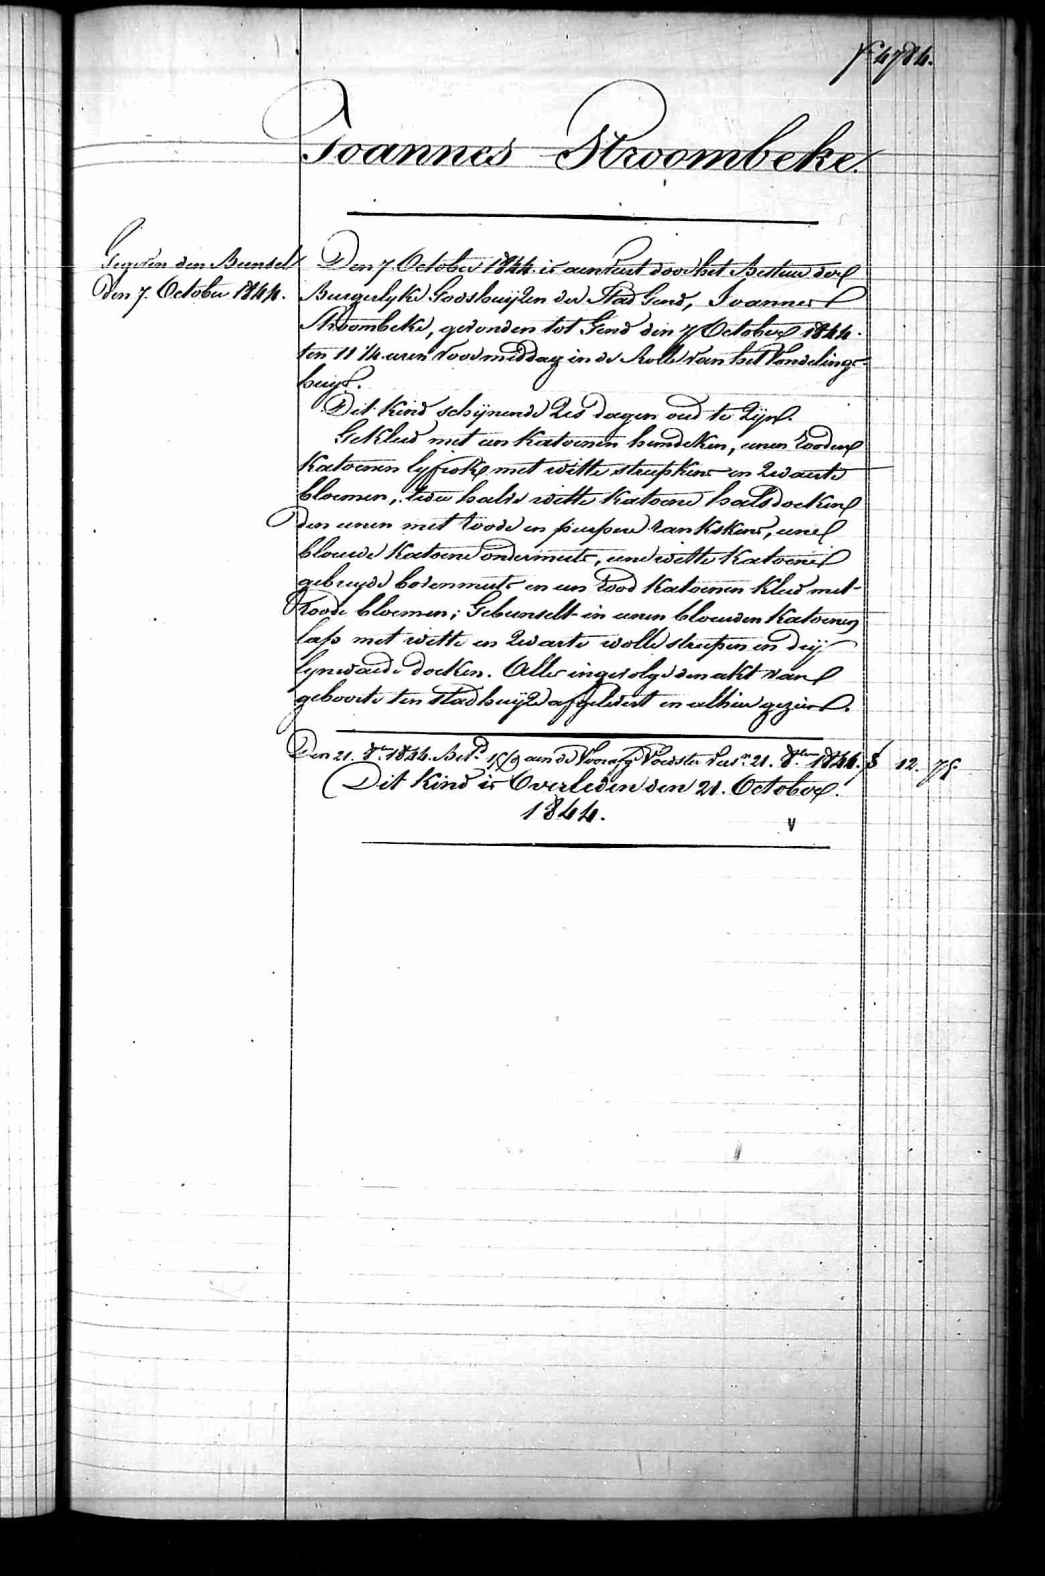 f° 4784.
Joannes Stroombeke.
Gegeven den Bunsel
den 7. October 1844.
Den 7. October 1844. is aenveirt door het Bestuer der
Burgerlyke Godshuijzen der Stad Gend, Joannes
Stroombeke, gevonden tot Gend den 7 October 1844.
ten 11 1/4 uren voormiddag in de Rolle van het Vondelings-
huijs.
Dit Kind schijnende zes dagen oud te zijn.
Gekleed met een Katoenen hemdeken, eenen rooden
Katoenen lyfrok met witte streepkens en zwarte
bloemen, twee halve witte Katoene halsdoeken
den eenen met roode en purpere rankskens, eene
blouwe Katoene ondermuts, eene witte Katoene
gebreyde bovenmuts en een rood Katoenen Kleed met
roode bloemen; Gebunselt in eenen blouwen Katoenen
lap met witte en zwarte wolle streepen en drij
lynwaede doeken. Alles ingevolge den akt van
geboorte ten stadhuijze afgelevert en alhier gezien.
Den 21. 8ber 1844. Bet.d aen de Voorafg Voedster 21. 8ber 1844. 12. 75
Dit Kind is Overleden den 21. October
1844.